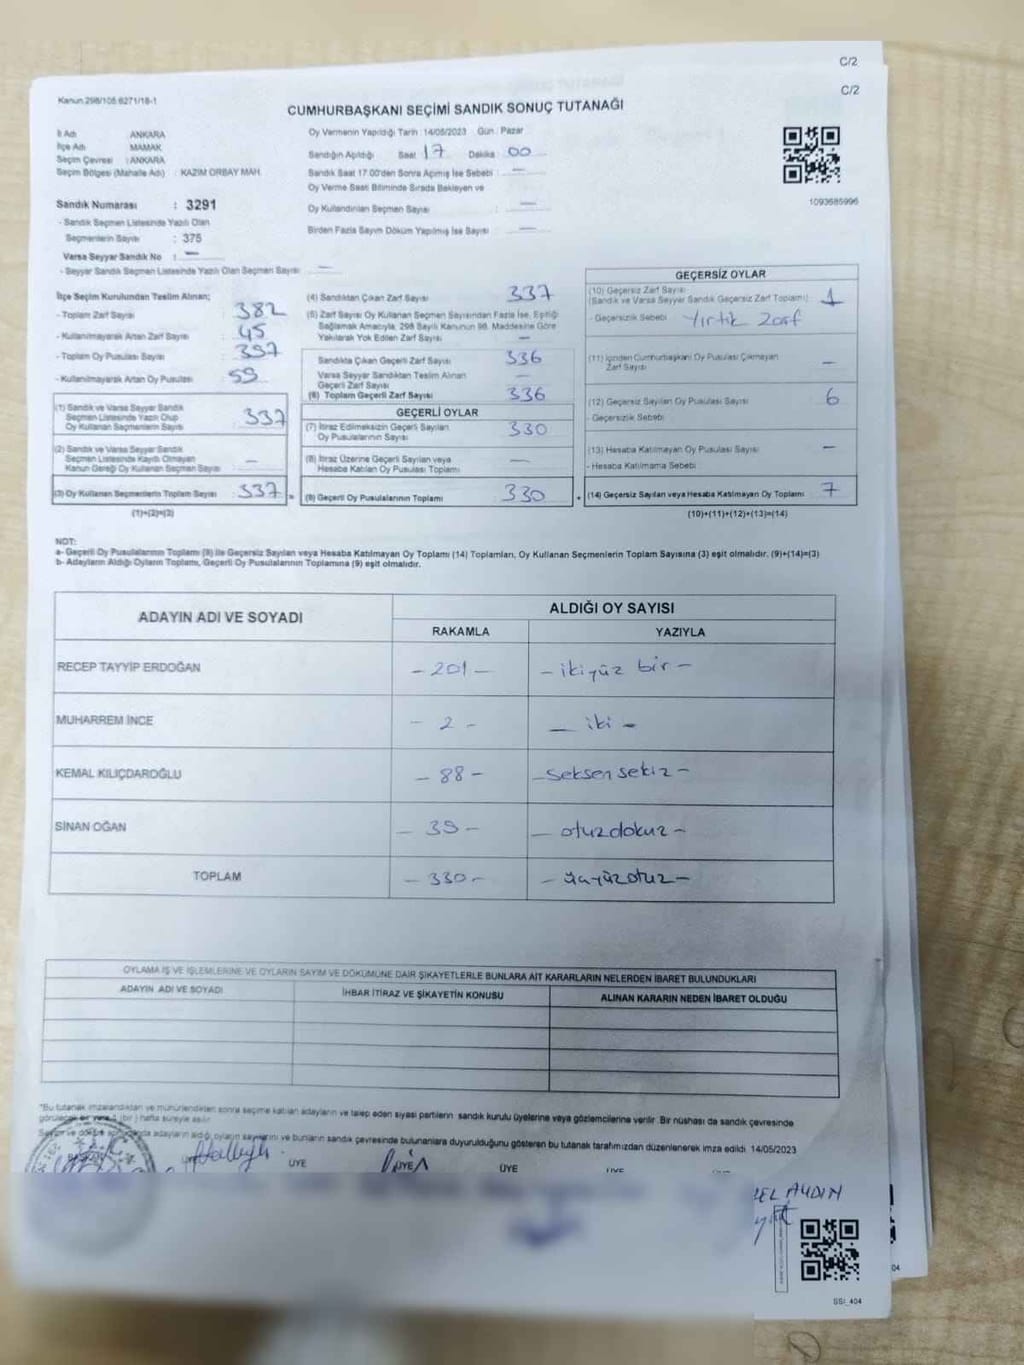 C/2
C/2
Kanun 298/105 6271/18-1
CUMHURBAŞKANI SEÇİMİ SANDIK SONUÇ TUTANAĞI
İl Adı ANKARA
İlçe Adı MAMAK
Seçim Çevresi : ANKARA
Seçim Bölgesi (Mahalle Adı) : KAZIM ORBAY MAH.
Sandık Numarası : 3291
- Sandık Seçmen Listesinde Yazılı Olan
Seçmenlerin Sayısı : 375
Varsa Seyyar Sandık No : —
- Seyyar Sandık Seçmen Listesinde Yazılı Olan Seçmen Sayısı —
Oy Vermenin Yapıldığı Tarih : 14/05/2023 Gün : Pazar
Sandığın Açıldığı Saat 17 Dakika : 00
Sandık Saat 17.00'den Sonra Açılmış İse Sebebi : —
Oy Verme Saati Bitiminde Sırada Bekleyen ve
Oy Kullandırılan Seçmen Sayısı : —
Birden Fazla Sayım Döküm Yapılmış İse Sayısı : —
1093685996
İlçe Seçim Kurulundan Teslim Alınan;
- Toplam Zarf Sayısı 382
- Kullanılmayarak Artan Zarf Sayısı 45
- Toplam Oy Pusulası Sayısı 397
- Kullanılmayarak Artan Oy Pusulası 59
(1) Sandık ve Varsa Seyyar Sandık
Seçmen Listesinde Yazılı Olup
Oy Kullanan Seçmenlerin Sayısı 337
(2) Sandık ve Varsa Seyyar Sandık
Seçmen Listesinde Kayıtlı Olmayan
Kanun Gereği Oy Kullanan Seçmen Sayısı —
(3) Oy Kullanan Seçmenlerin Toplam Sayısı 337 =
(1)+(2)=(3)
(4) Sandıktan Çıkan Zarf Sayısı 337
(5) Zarf Sayısı Oy Kullanan Seçmen Sayısından Fazla İse, Eşitliği
Sağlamak Amacıyla, 298 Sayılı Kanunun 98. Maddesine Göre
Yakılarak Yok Edilen Zarf Sayısı —
Sandıkta Çıkan Geçerli Zarf Sayısı 336
Varsa Seyyar Sandıktan Teslim Alınan
Geçerli Zarf Sayısı —
(6) Toplam Geçerli Zarf Sayısı 336
GEÇERLİ OYLAR
(7) İtiraz Edilmeksizin Geçerli Sayılan
Oy Pusulalarının Sayısı 330
(8) İtiraz Üzerine Geçerli Sayılan veya
Hesaba Katılan Oy Pusulası Toplamı —
(9) Geçerli Oy Pusulalarının Toplamı 330 +
GEÇERSİZ OYLAR
(10) Geçersiz Zarf Sayısı
(Sandık ve Varsa Seyyar Sandık Geçersiz Zarf Toplamı) 1
- Geçersizlik Sebebi Yırtık Zarf
(11) İçinden Cumhurbaşkanı Oy Pusulası Çıkmayan
Zarf Sayısı —
(12) Geçersiz Sayılan Oy Pusulası Sayısı 6
- Geçersizlik Sebebi
(13) Hesaba Katılmayan Oy Pusulası Sayısı —
- Hesaba Katılmama Sebebi
(14) Geçersiz Sayılan veya Hesaba Katılmayan Oy Toplamı 7
(10)+(11)+(12)+(13)=(14)
NOT:
a- Geçerli Oy Pusulalarının Toplamı (9) ile Geçersiz Sayılan veya Hesaba Katılmayan Oy Toplamı (14) Toplamları, Oy Kullanan Seçmenlerin Toplam Sayısına (3) eşit olmalıdır. (9)+(14)=(3)
b- Adayların Aldığı Oyların Toplamı, Geçerli Oy Pusulalarının Toplamına (9) eşit olmalıdır.
ADAYIN ADI VE SOYADI
ALDIĞI OY SAYISI
RAKAMLA YAZIYLA
RECEP TAYYİP ERDOĞAN - 201 - - ikiyüz bir -
MUHARREM İNCE - 2 - - iki -
KEMAL KILIÇDAROĞLU - 88 - - seksen sekiz -
SİNAN OĞAN - 39 - - otuzdokuz -
TOPLAM - 330 - - üçyüzotuz -
OYLAMA İŞ VE İŞLEMLERİNE VE OYLARIN SAYIM VE DÖKÜMÜNE DAİR ŞİKAYETLERLE BUNLARA AİT KARARLARIN NELERDEN İBARET BULUNDUKLARI
ADAYIN ADI VE SOYADI İHBAR İTİRAZ VE ŞİKAYETİN KONUSU ALINAN KARARIN NEDEN İBARET OLDUĞU
*Bu tutanak imzalandıktan ve mühürlendikten sonra seçime katılan adayların ve talep eden siyasi partilerin sandık kurulu üyelerine veya gözlemcilerine verilir. Bir nüshası da sandık çevresinde
(bir) hafta süreyle asılır.
adayların aldığı oyların sayılarını ve bunların sandık çevresinde bulunanlara duyurulduğunu gösteren bu tutanak tarafımızdan düzenlenerek imza edildi. 14/05/2023
ÜYE ÜYE ÜYE
AYDIN
SSI_404
04